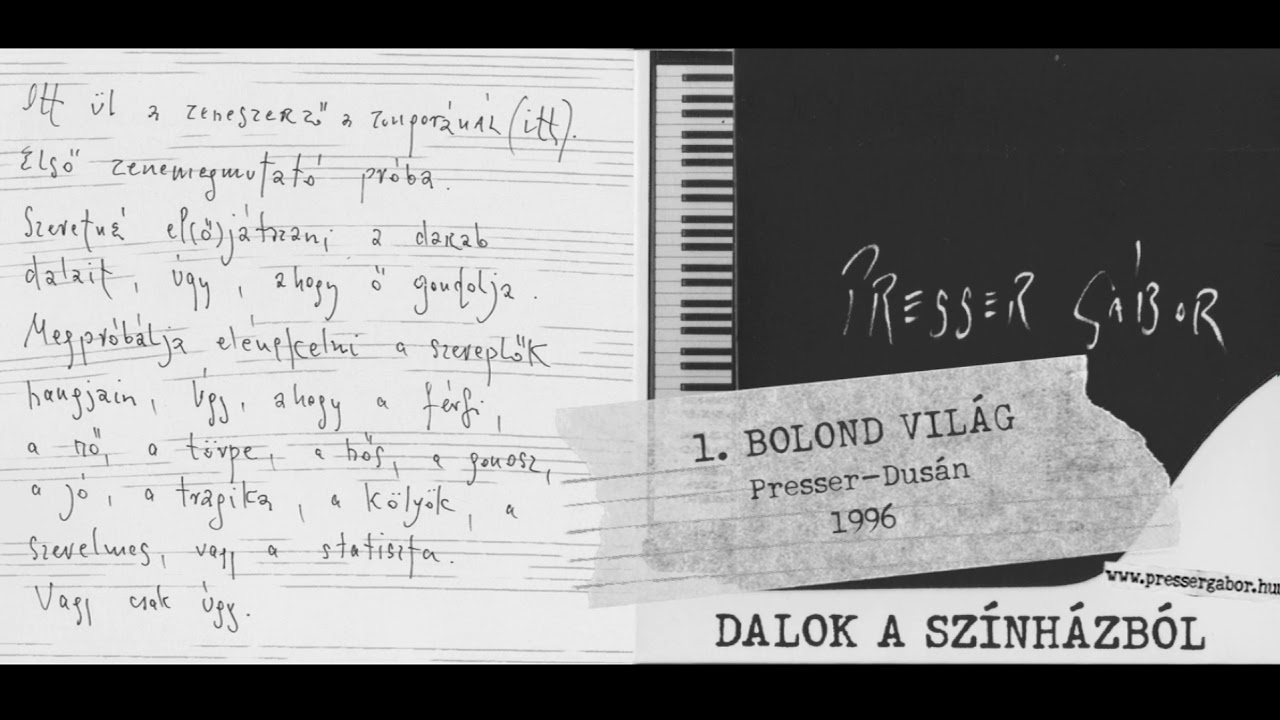 Itt ül a zeneszerző a zongoránál (itt).
Első zenemegmutató próba.
Szeretné el(ő)játszani a darab
dalait, úgy, ahogy ő gondolja.
Megpróbálja elénekelni a szereplők
hangjain, úgy, ahogy a férfi,
a nő, a törpe, a hős, a gonosz,
a jó, a tragika, a kölyök, a
szerelmes, vagy a statiszta.
Vagy csak úgy.
PRESSER GÁBOR
1. BOLOND VILÁG
Presser-Dusán
1996
www.pressergabor.hu
DALOK A SZÍNHÁZBÓL